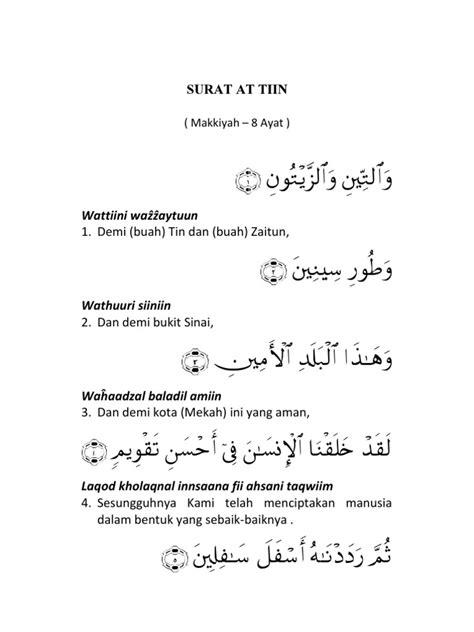 SURAT AT TIIN
( Makkiyah – 8 Ayat )
وَٱلتِّينِ وَٱلزَّيْتُونِ ۝١
Wattiini waẑẑaytuun
1. Demi (buah) Tin dan (buah) Zaitun,
وَطُورِ سِينِينَ ۝٢
Wathuuri siiniin
2. Dan demi bukit Sinai,
وَهَـٰذَا ٱلْبَلَدِ ٱلْأَمِينِ ۝٣
Waĥaadzal baladil amiin
3. Dan demi kota (Mekah) ini yang aman,
لَقَدْ خَلَقْنَا ٱلْإِنسَـٰنَ فِىٓ أَحْسَنِ تَقْوِيمٍ ۝٤
Laqod kholaqnal innsaana fii ahsani taqwiim
4. Sesungguhnya Kami telah menciptakan manusia
dalam bentuk yang sebaik-baiknya .
ثُمَّ رَدَدْنَـٰهُ أَسْفَلَ سَـٰفِلِينَ ۝٥